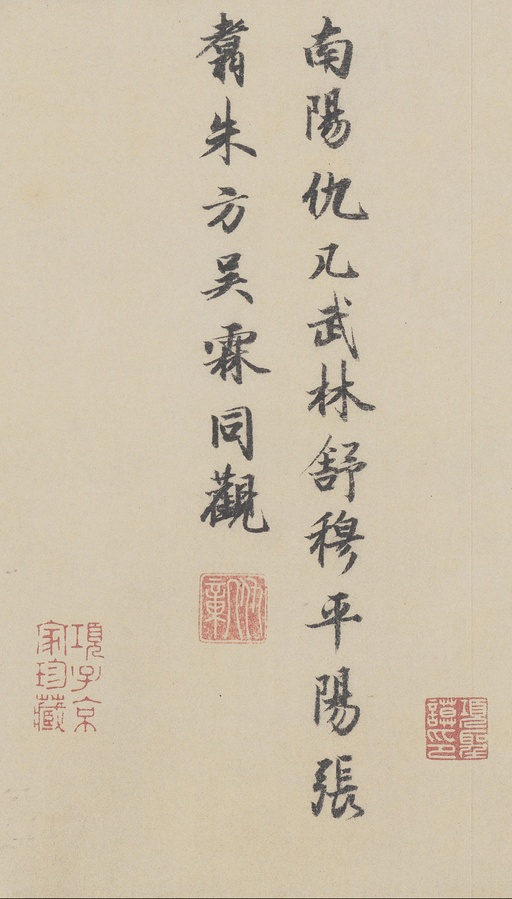 南陽仇凡武林舒穆平陽張
翥朱方吳霖同觀
項子京
家珍藏
項聖
謨印